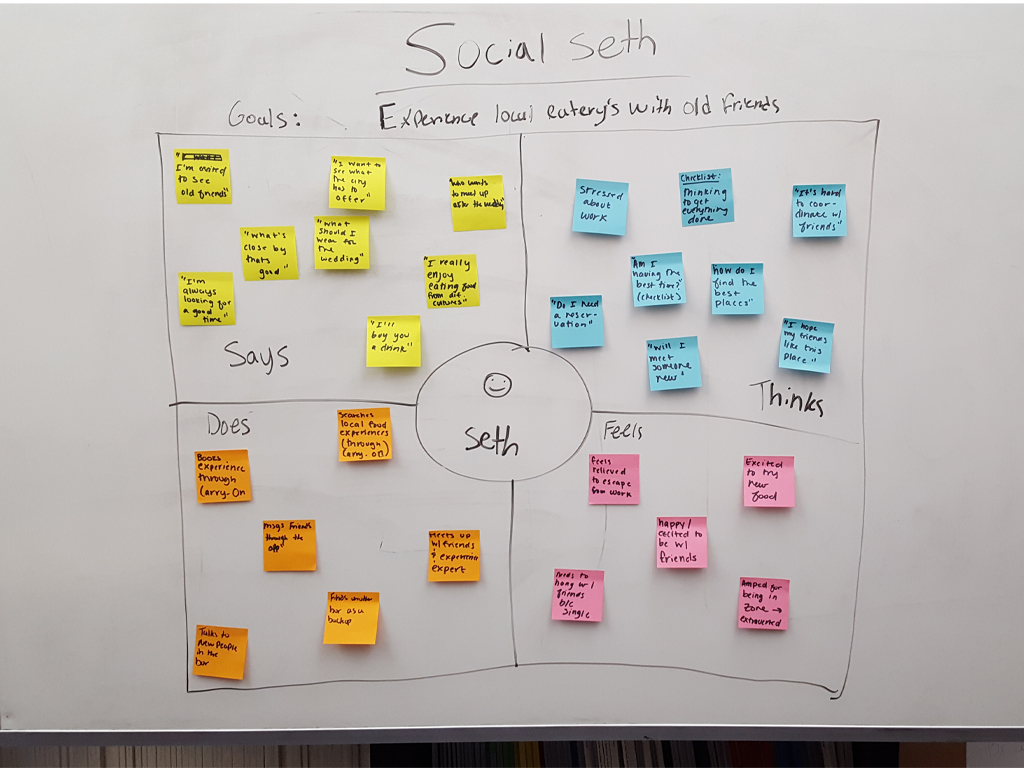 Social Seth
Goals: Experience local eatery's with old friends
"I'm excited
to see
old friends"
"I want to
see what
the city
has to
offer"
"who wants
to meet up
after the wedding"
"What's
close by
thats
good"
"what
should I
wear for
the
wedding"
"I'm
always
looking for
a good
time"
"I really
enjoy
eating food
from dif.
cultures"
"I'll
buy you
a drink"
Says
Stressed
about
work
Checklist:
Thinking
to get
everything
done
"It's hard
to coor-
dinate w/
friends"
"Am I
having the
best time?"
(checklist)
how do I
find the
best
places"
"Do I need
a reser-
vation"
"will I
meet
someone
new"
"I hope
my friends
like this
place"
Thinks
Seth
Does
Searches
local food
experiences
(through)
(arry-on)
Books
experience
through
Carry-On
msgs friends
through the
app"
Meets up
w/ friends
& experience
expert
Finds another
bar as a
backup
Talks to
New People
in the
bar
Feels
feels
relieved
to escape
from work
Excited
to try
new
food
happy/
excited to
be w/
friends
Needs to
hang w/
friends
b/c
single
Amped for
being in
zone →
extraverted